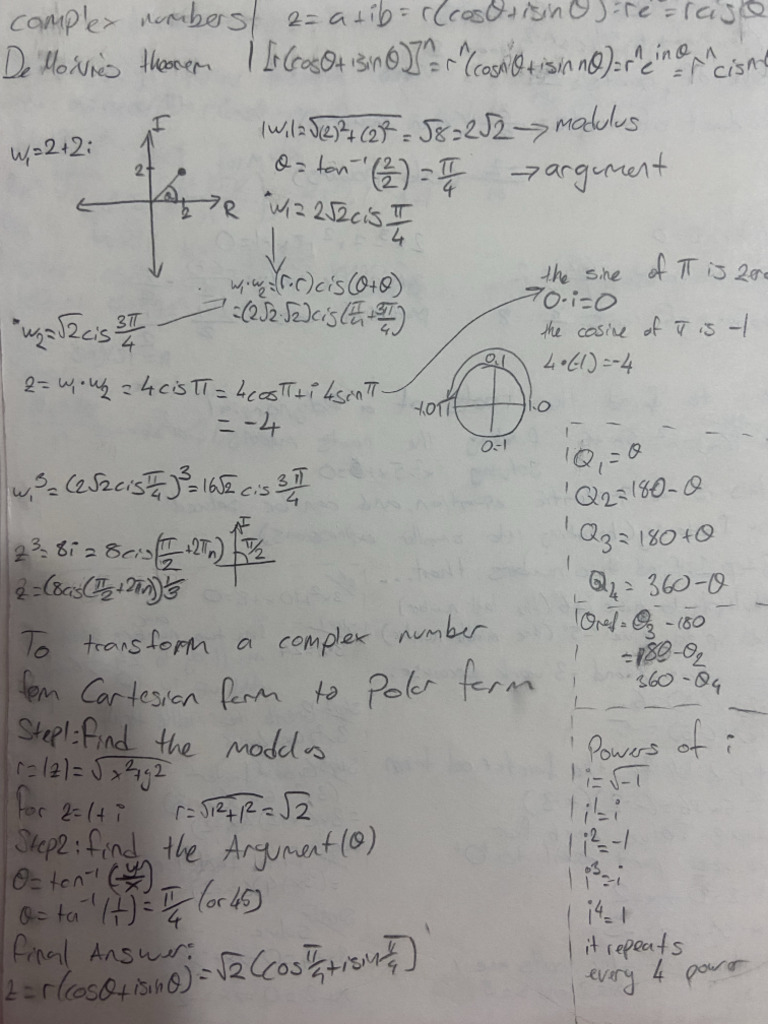 complex numbers | z = a+ib = r(cosθ+isinθ) = re^iθ = rcisθ
De Moivres theorem | [r(cosθ+isinθ)]^n = r^n(cosnθ+isin nθ) = r^n e^inθ = r^n cisnθ
w₁=2+2i
I
2
2
R
|w₁|=√(2)²+(2)² = √8 = 2√2 → modulus
θ = tan⁻¹(2/2) = π/4 → argument
*w₁ = 2√2 cis π/4
w₁·w₂=(r·r)cis(θ+θ)
=(2√2·√2)cis(π/4+3π/4)
*w₂=√2 cis 3π/4
z = w₁·w₂ = 4cisπ = 4cosπ+i4sinπ
= -4
the sine of π is zero
0·i=0
the cosine of π is -1
4·(-1)=-4
0.1
-1.0
π
1.0
0.-1
w₁³=(2√2cisπ/4)³=16√2 cis 3π/4
z³=8i = 8cis(π/2+2πn)
I
π/2
z=(8cis(π/2+2πn))^1/3
Q₁=θ
Q₂=180-θ
Q₃=180+θ
Q₄=360-θ
θref=θ₃-180
=180-θ₂
360-θ₄
To transform a complex number
fom Cartesian form to Polar form
Step1:Find the modulus
r=|z|=√x²+y²
for z=1+i r=√1²+1²=√2
Step2:find the Argument(θ)
θ=tan⁻¹(y/x)
θ=ta⁻¹(1/1)=π/4 (or 45)
final Answer:
z=r(cosθ+isinθ)=√2(cosπ/4+isinπ/4)
Powers of i
i=√-1
i¹=i
i²=-1
i³=-i
i⁴=1
it repeats
every 4 power